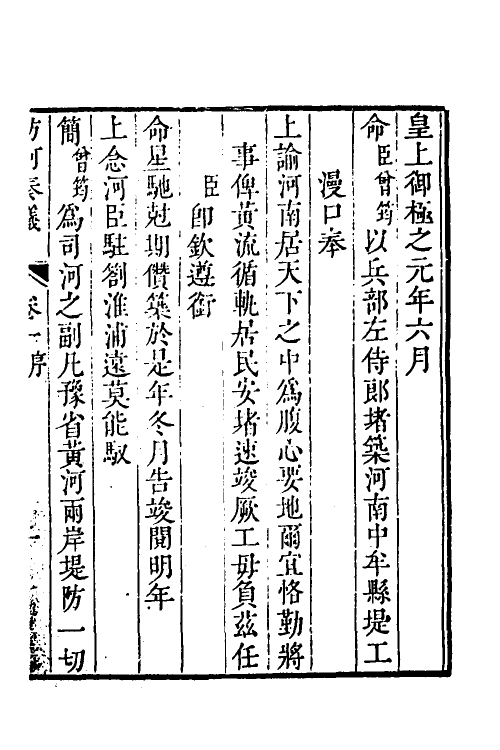 皇上御極之元年六月
命臣曾筠以兵部左侍郎堵築河南中牟縣堤工
漫口奉
上諭河南居天下之中為腹心要地爾宜恪勤將
事俾黃流循軌居民安堵速竣厥工毋負茲任
臣卽欽遵銜
命星馳尅期儹築於是年冬月告竣閱明年
上念河臣駐劄淮浦遠莫能馭
簡曾筠為司河之副凡豫省黃河兩岸堤防一切
防河奏議 卷一序